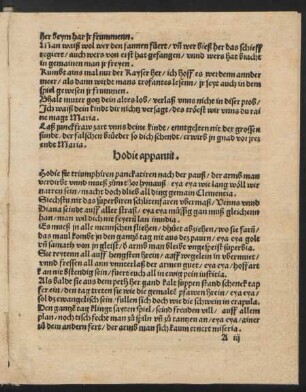 her beym har jr frummenn.
Man waiß wol wer den fannen fůert / vñ wer dieß her das schieff
regiert / auch wers von erst hat gefangen / vnnd wers hat bracht
in gemainen man jr freyen.
Kumbt ains mal nur der Kayser her / ich hoff es werdenn annder
meer / als dann wirdt mans trosfantes lesenn / jr seyt auch in dem
spiel gewesen jr frummenn.
Bhalt muter got dein altes lob / verlaß vnns nicht in diser prob /
Ich waiß dein kindt dir nichtz versagt / des tröest wir vnns du rai
ne magt Maria.
Laß junckfraw zart vnns deine kinde / enntgelten nit der grossen
sünde. der falschen brüeder so dich schendt. erwirb jn gnad vor jrẽ
ende Maria.
Hodie apparuit.
Hodie sie triumphiren panckatiren nach der pauß / der armß man
verdirbt vnnd mueß zům thor hynauß. eya eya wie lang wöll wir
narren sein / macht doch bließ all ding gemain Clemencia.
Siechstu nit das papierbiren schlittenfaren vbermaß / Venus vnnd
Diana seindt auff alle straß / eya müssig gan muß gleichenn
han / man wil doch nit feyern lan inundia.
Es mueß in alle mennschen fliehen / dhüet abziehen / wo sie farñ /
das maul kombt jn den gantzẽ tag nit aus des paurn / eya eya golt
vñ samath von jn gleist / der armß man bleibt vngespeist superbia.
Sie reytenn all auff hengsten herein / auff wegelein in vbermuet /
vnnd fressen all ann vnnterlaß der armen guet / eya eya / hoffart
kan nit bstendig sein / fuert euch all in ewig pein iusticia.
Als balde sie aus dem peth her gand kalt suppen stand schenck tap
fer ein / den tag treten sie wie die gemalet pfarren herein / eya eya /
sol dz ewangelisch sein / füllen sich doch wie die schwein in crapula.
Den gantzẽ tag klingt sayten spiel / seind freuden vill / auff allem
plan / noch tischs fecht man zů spiln vñ zů tanzen an / eya eya / ainer
tů dem andern fert / der armß man sich kaum ernert miseria.
A iij